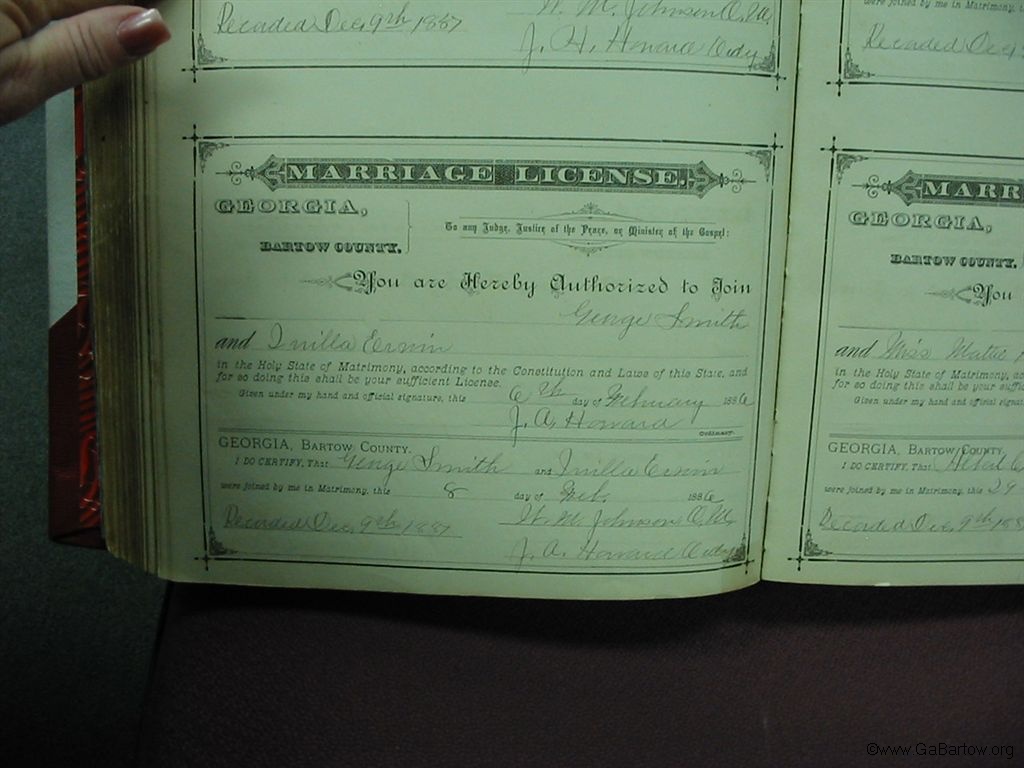 Recorded Dec, 9th 1887
W. M. Johnson O. M.
J. H. Howard Ordy
were joined by me in Matrimony, th
Recorded Dec, 9
MARRIAGE LICENSE.
GEORGIA,
BARTOW COUNTY.
To any Judge, Justice of the Peace, or Minister of the Gospel:
You are Hereby Authorized to Join
George Smith
and Inilla Erwin
in the Holy State of Matrimony, according to the Constitution and Laws of this State, and
for so doing this shall be your sufficient License.
Given under my hand and official signature, this 6th day of February 1886
J. A. Howard
ORDINARY.
GEORGIA, BARTOW COUNTY.
I DO CERTIFY, That George Smith and Inilla Erwin
were joined by me in Matrimony, this 8 day of Feb. 1886
Recorded Dec, 9th 1887
W. M. Johnson O. M.
J. A. Howard Ordy
MARR
GEORGIA,
BARTOW COUNTY.
You
and Miss Mattie
in the Holy State of Matrimony, a
for so doing this shall be your suffic
Given under my hand and official signatur
GEORGIA, BARTOW COUNTY.
I DO CERTIFY, That
were joined by me in Matrimony, this 29
Recorded Dec, 9th 188
©www.GaBartow.org